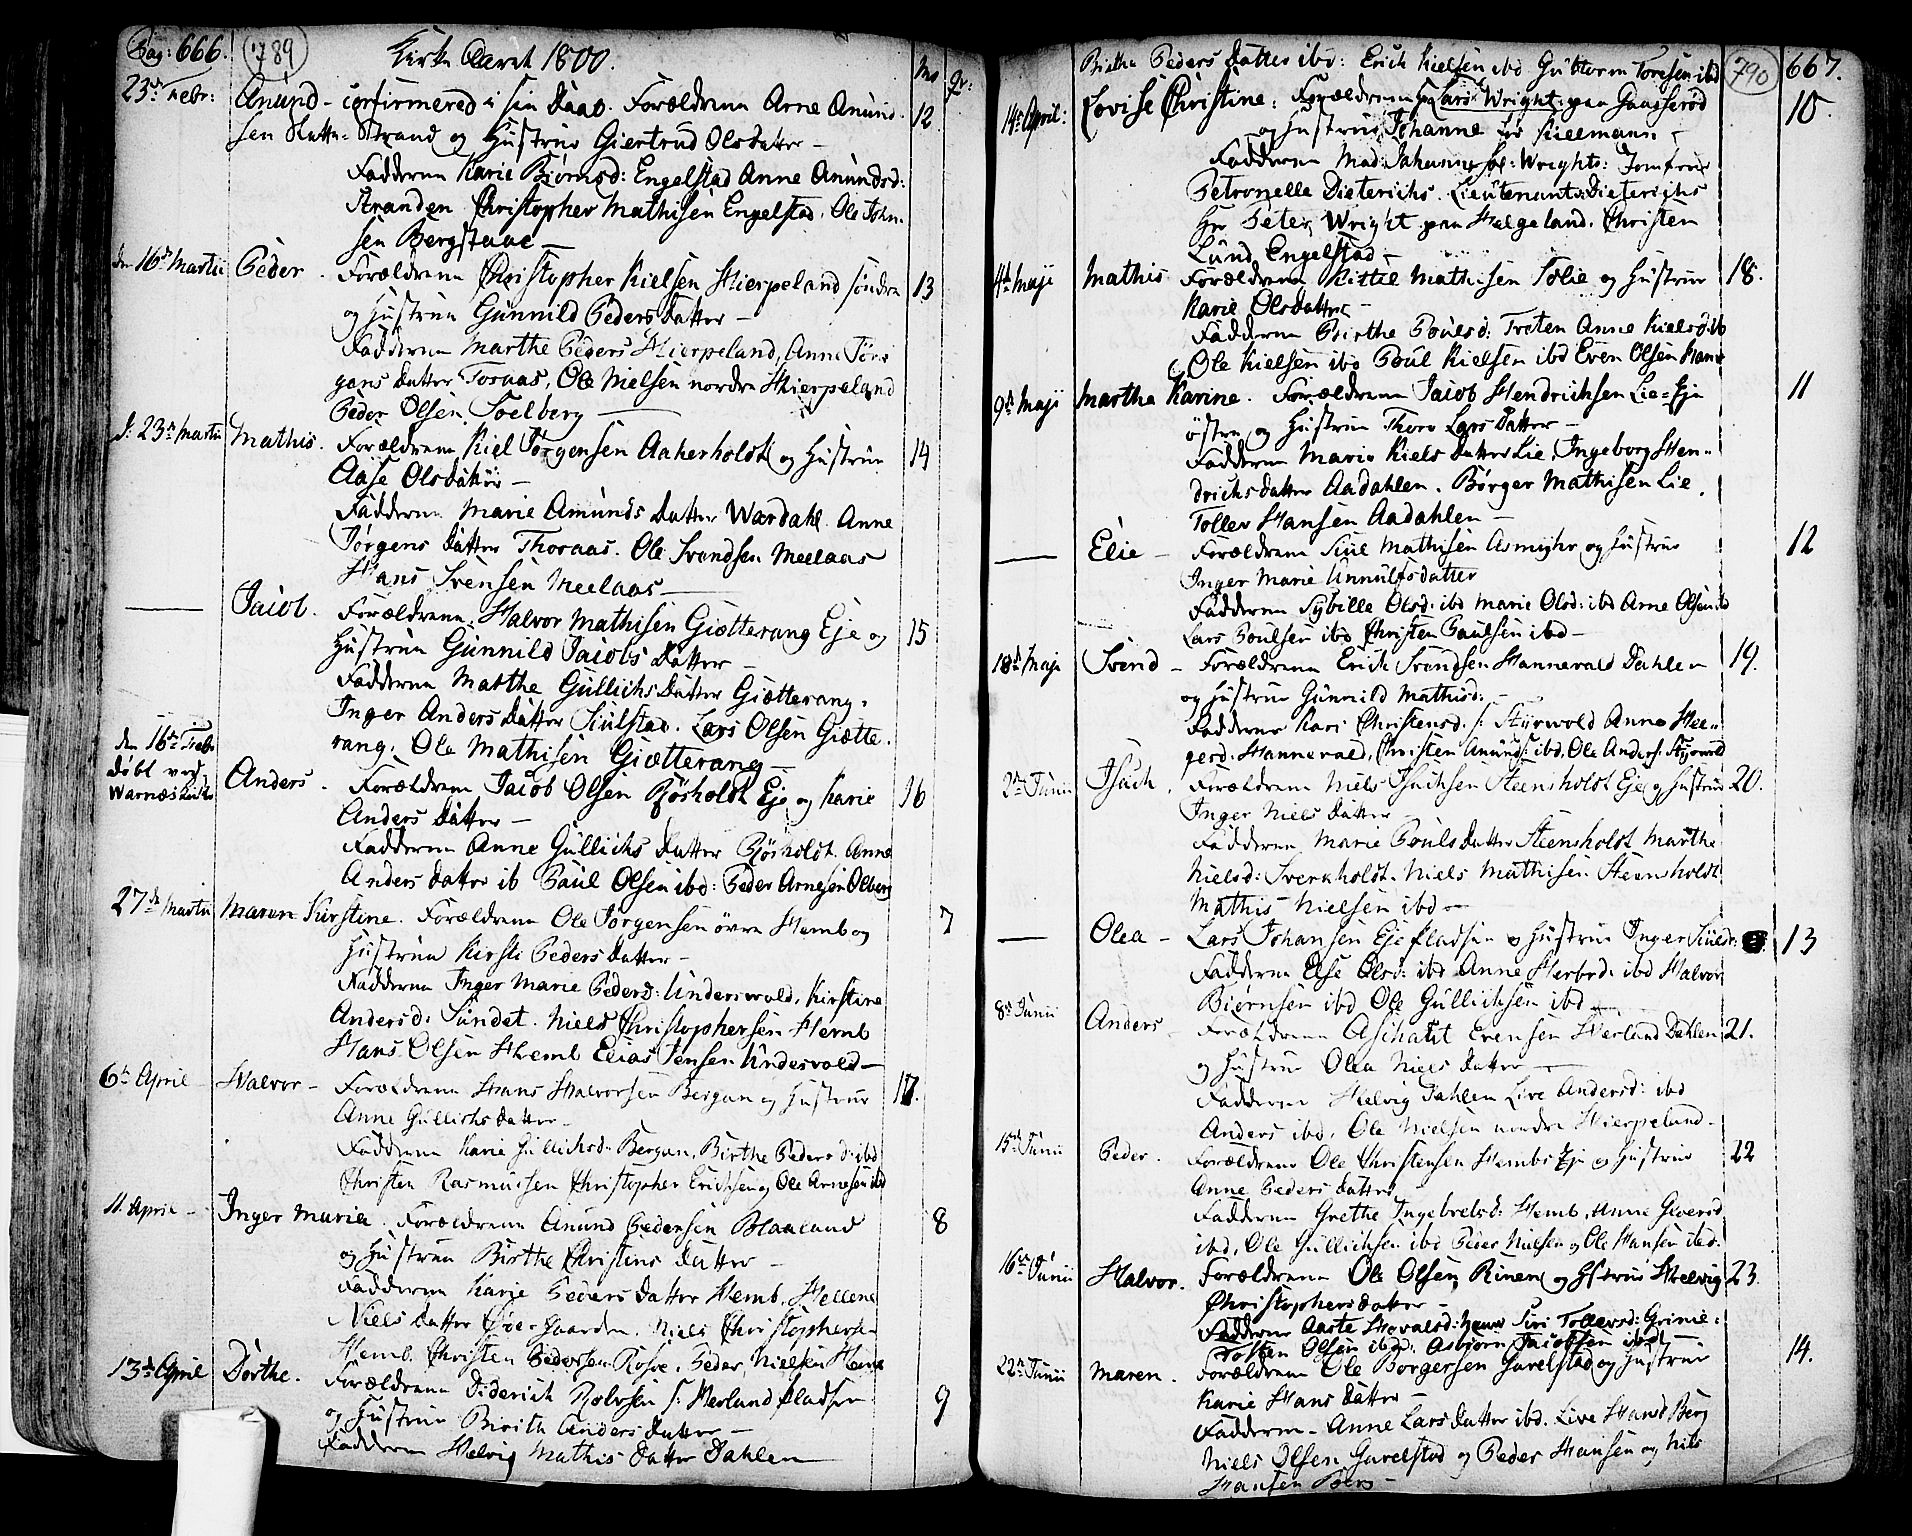 Pag: 666. 789 Kirke Aaret 1800. M. Qv:
23de Febr: Anund - confirmered i sin Daab. Forældrene Arne Anund- 12
sen Strand og Hustrue Giertrud Olsdatter -
Fadderne Karie Biørnsd: Engelstad Anne Anundsd:
Stranden Christopher Mathisen Engelstad. Ole John-
sen Bergstuae -
den 16de Martii Peder. Forældrene Christopher Kielsen Hierpeland søndre 13
og Hustrue Gunnild Peders datter -
Fadderne Marthe Peders Hierpeland, Anne Jørs
gens datter Toraas, Ole Nielsen nordre Hierpeland
Peder Olsen Soelberg -
d: 23de Martii Mathis. Forældrene Kiel Jørgensen Aakerholdt og Hustrue 14
Aase Olsdatter -
Fadderne Marie Amunds datter Wardahl Anne
Jørgens datter Thoraas. Ole Svendsen Meelaas
Hans Svensen Meelaas -
— Jacob. Forældrene Halvor Mathisen Giøtterang Eje og 15
Hustrue Gunnild Jacobs datter -
Fadderne Marthe Gullichs datter Giøtterang.
Inger Anders datter Skulstad. Lars Olsen Giøtte-
rang. Ole Mathisen Giøtterang -
den 16de Febr
døbt ved
Warnæs Kirke Anders. Forældrene Jacob Olsen Røsholdt Eje og Karie 16
Anders datter -
Fadderne Anne Gullichs datter Røsholdt. Anne
Anders datter ib Paul Olsen ibd: Peder Arnesen Olberg
27de Martii Maren Kirstine. Forældrene Ole Jørgensen øvre Hemb og 7
Hustrue Kirsti Peders datter -
Fadderne Inger Marie Pedersd: Underswold. Kirstine
Andersd: Sundet. Niels Christophersen Hemb
Hans Olsen Hemb Elias Jensen Undersvold -
6te April Halvor - Forældrene Hans Halvorsen Bergan og Hustrue 17.
Anne Gullichs datter -
Fadderne Karie Gullichsd: Bergan. Birthe Pedersd: ibd
Christen Rasmussen Christopher Erichsen og Ole Arnesen ibd
11. April - Inger Maria. Forældrene Anund Pedersen Blaaland 8
og Hustrue Birthe Christens datter -
Fadderne Karie Peders datter Hemb. Hellene
Niels datter Øde-gaarden. Niels Christophersen
Hemb. Christen Pedersen Rosve. Peder Nielsen Hemb
13de April Dorthe. Forældrene Diderich Rolvsen s. Herland pladsen 9
og Hustrue Birith Anders datter -
Fadderne Helvig Mathis datter Dahlen
Birthe Peders datter ibd: Erich Kielsen ibd Guttorm Toresen ibd 790 667.
14de April: Lovise Christine. Forældrene Hr Lars Wright paa Gaasserød 10.
og Hustrue Johanne fød Kielmann -
Fadderne Mad: Johanne Sal: Wrights: Jomfrue
Petronelle Dieterichs. Lieutenant Dieterichs
Hr Peter Wright paa Helgeland. Christen
Lund Engelstad -
4de Maji Mathis Forældrene Kittel Mathisen Folie og Hustrue 18.
Karie Olsdatter -
Fadderne Birthe Poulsd: Treten Anne Kielsd: ib
Ole Kielsen ibd Poul Kielsen ibd Even Olsen
9de Maji Martha Karine. Forældrene Jacob Hendrichsen Lie-Eje 11
østre og Hustrue Thore Lars datter -
Fadderne Marie Kiels datter Lie, Ingeborg Hen-
drichsdatter Aadahlen. Børger Mathisen Lie.
Tollev Hansen Aadahlen -
— Elie - Forældrene Kiil Mathisen Asmyhr og Hustrue 12
Inger Marie Unnulfsdatter
Fadderne Sybille Olsd: ibd Marie Olsd: ibd Arne Olsen ibd
Lars Poulsen ibd Christen Paulsen ibd -
18de Maji Svend - Forældrene Erich Svendsen Hannevald Dahlen 19.
og Hustrue Gunnild Mathisd: -
Fadderne Kari Christensd. s. Styrvold Anne Hee-
gerd. Hannevald, Christen Anunds: ibd, Ole Anders: Styrvold
2de Junii Isach. Forældrene Niels Isachsen Steensholdt Eje og Hustrue 20.
Inger Niels datter
Fadderne Marie Pouls datter Steensholdt Marthe
Nielsd: Svenkholdt. Niels Mathisen Steensholdt
Mathis Nielsen ibd -
— Olea - Lars Johansen Eje pladsen og Hustrue Inger Kielsd: 13
Fadderne Else Olsd: ibd Anne Herbrd: ibd Halvor
Biørnsen ibd Ole Gullichsen ibd
8de Junii Anders - Forældrene Aschatil Evensen Herland Dahlen 21.
og Hustrue Olea Niels datter -
Fadderne Helvig Dahlen Live Andersd: ibd
Anders ibd. Ole Nielsen nordre Hierpeland.
15de Junii Peder. Forældrene Ole Christensen Hembs Eje og Hustrue 22
Anne Peders datter
Fadderne Grethe Ingebretsd: Hemb. Anne Giversd
ibd, Ole Gullichsen ibd Peder Nielsen og Ole Hansen ibd:
16de Junii Halvor. Forældrene Ole Olsen Rinen og Hstrue Helvig 23.
Christophers datter -
Fadderne Aaste Hovalsd: Siri Tollevsd: Grimie:
Tosten Olsen ibd: Asbiørn Jacobsen ibd -
22de Junii Maren. Forældrene Ole Borgersen Gavelstad og Hustrue 14.
Karie Hans datter -
Fadderne - Anne Lars datter ibd. Live Hansd Berg
Niels Olsen Gavelstad og Peder Hansen og Nils
Hansen Berg -